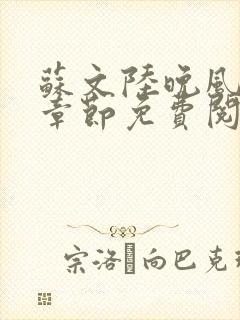 蘇文陸晚風
章節免費閱
宗洛 向巴克